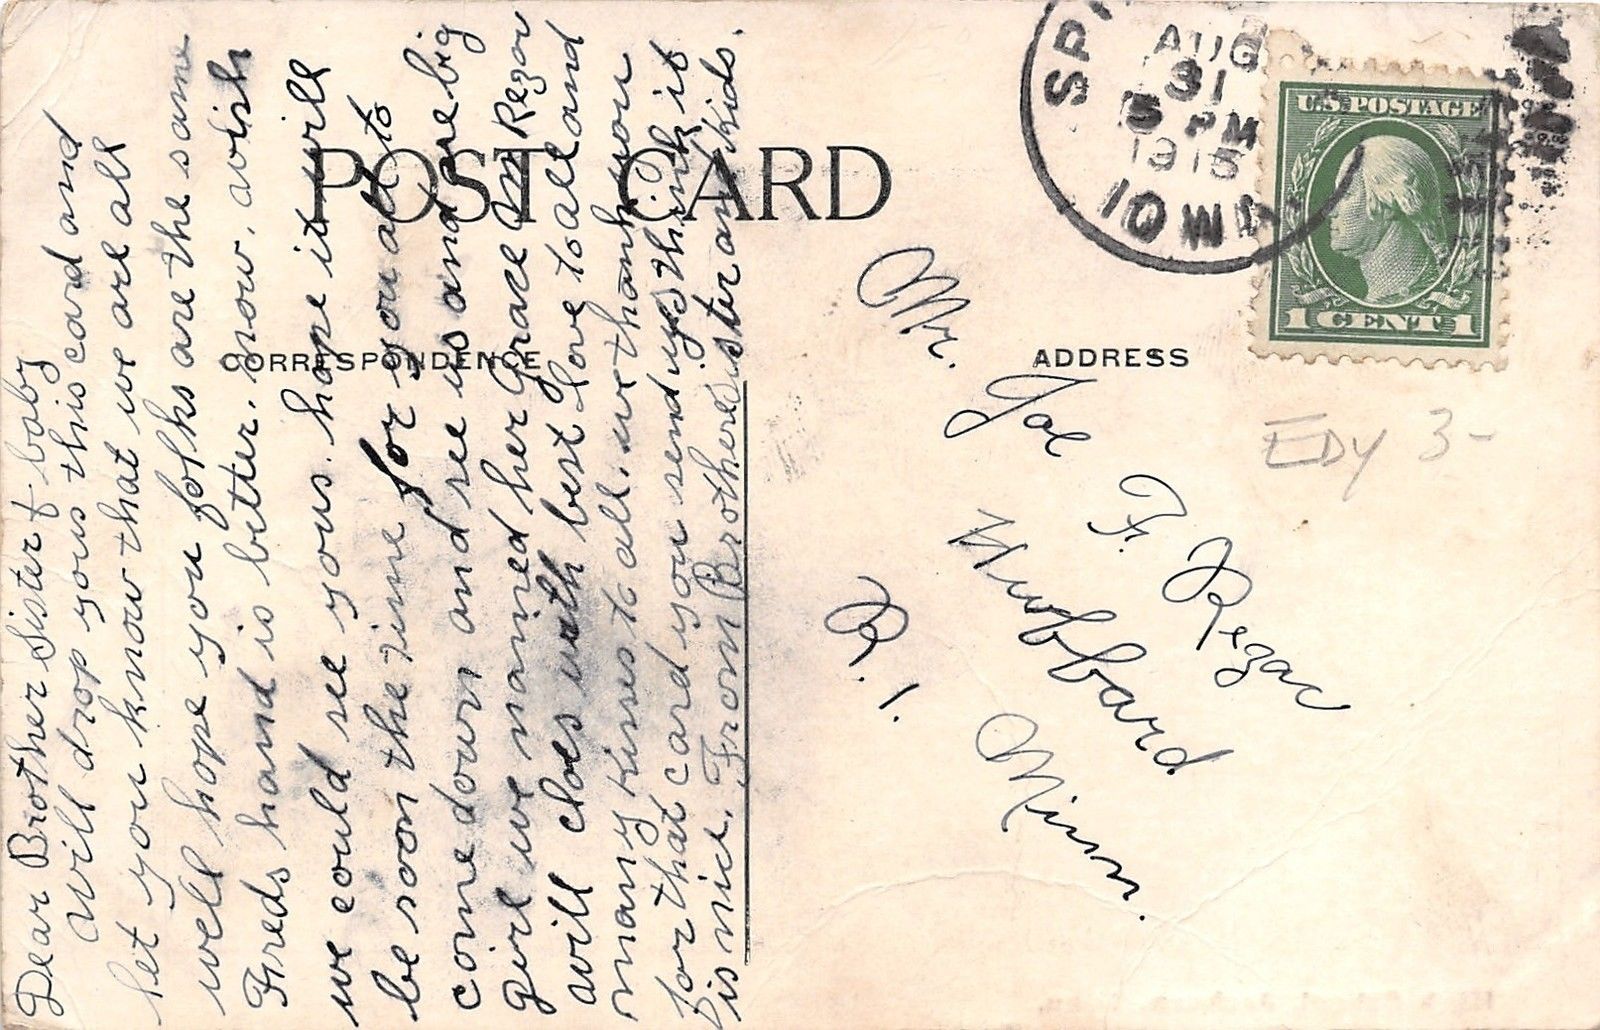 POST CARD
CORRESPONDENCE
ADDRESS
AUG
31
5 PM
1915
IOWA
U.S. POSTAGE
1 CENT 1
EDY 3-
Mr.
Joe F. Rezac
Hubbard
R. 1. Minn.
Dear Brother Sister & baby
Will drop yous this card and
let you know that we are all
well hope you folks are the same
Freds hand is better. now. wish
we could see yous. hope it will
be soon the time for you all to
come down and see us and are big
girl we named her Grace M Rezac
will cloes with best love to all and
many kisses to all. we thank you
for that card you send us think it
is nice. From Brother sister and kids.